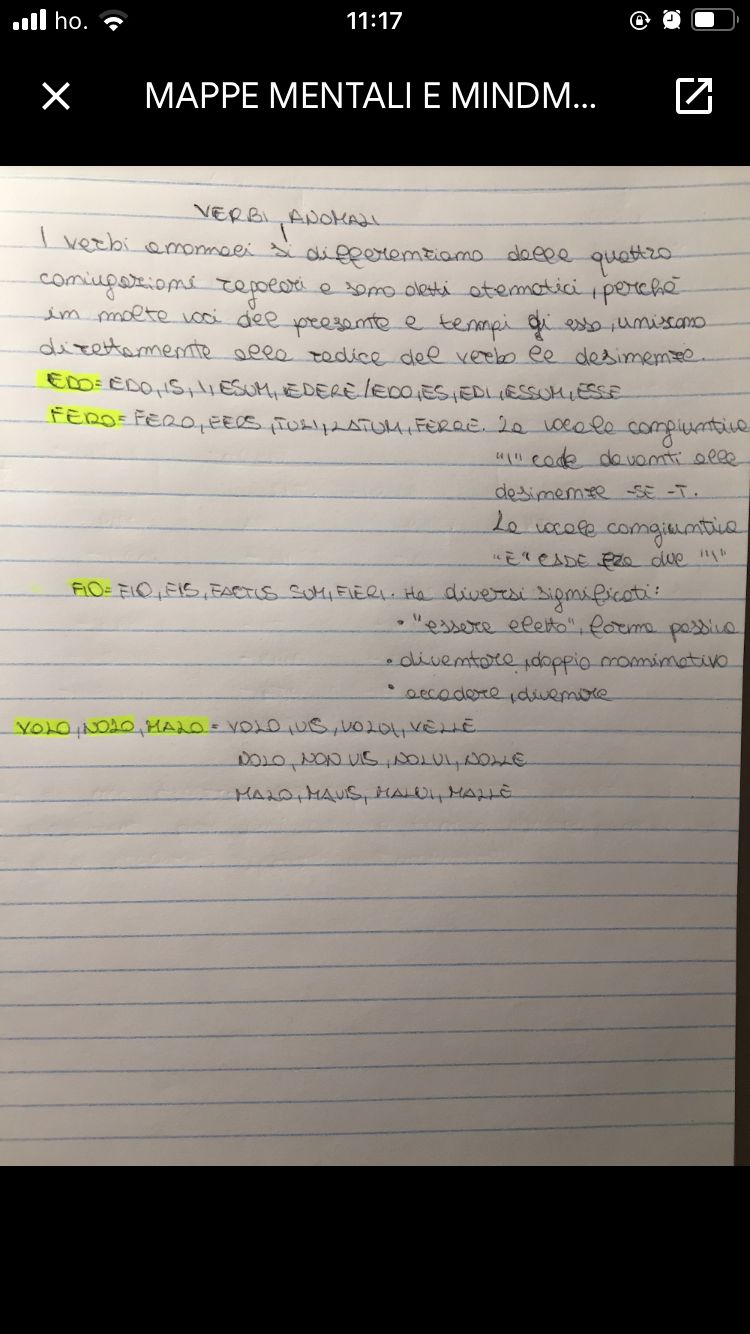 ho.
11:17
MAPPE MENTALI E MINDM...
VERBI ANOMALI
I verbi anomali si differenziano dalle quattro
coniugazioni regolari e sono detti atematici, perché
in molte voci del presente e tempi di esso, uniscono
direttamente alla radice del verbo le desinenze.
EDO= EDO, IS, II, ESUM, EDERE/EDO, ES, EDI, ESSUM, ESSE
FERO= FERO, FERS, TULI, LATUM, FERRE. La vocale congiuntiva
"I" cade davanti alle
desinenze -SE -T.
La vocale congiuntiva
"E" CADE fra due "I"
FIO= FIO, FIS, FACTUS SUM, FIERI. Ha diversi significati:
• "essere eletto", forma passiva
• diventare, doppio nominativo
• accadere, divenire
VOLO, NOLO, MALO= VOLO, VIS, VOLUI, VELLE
NOLO, NON VIS, NOLUI, NOLLE
MALO, MAVIS, MALUI, MALLE